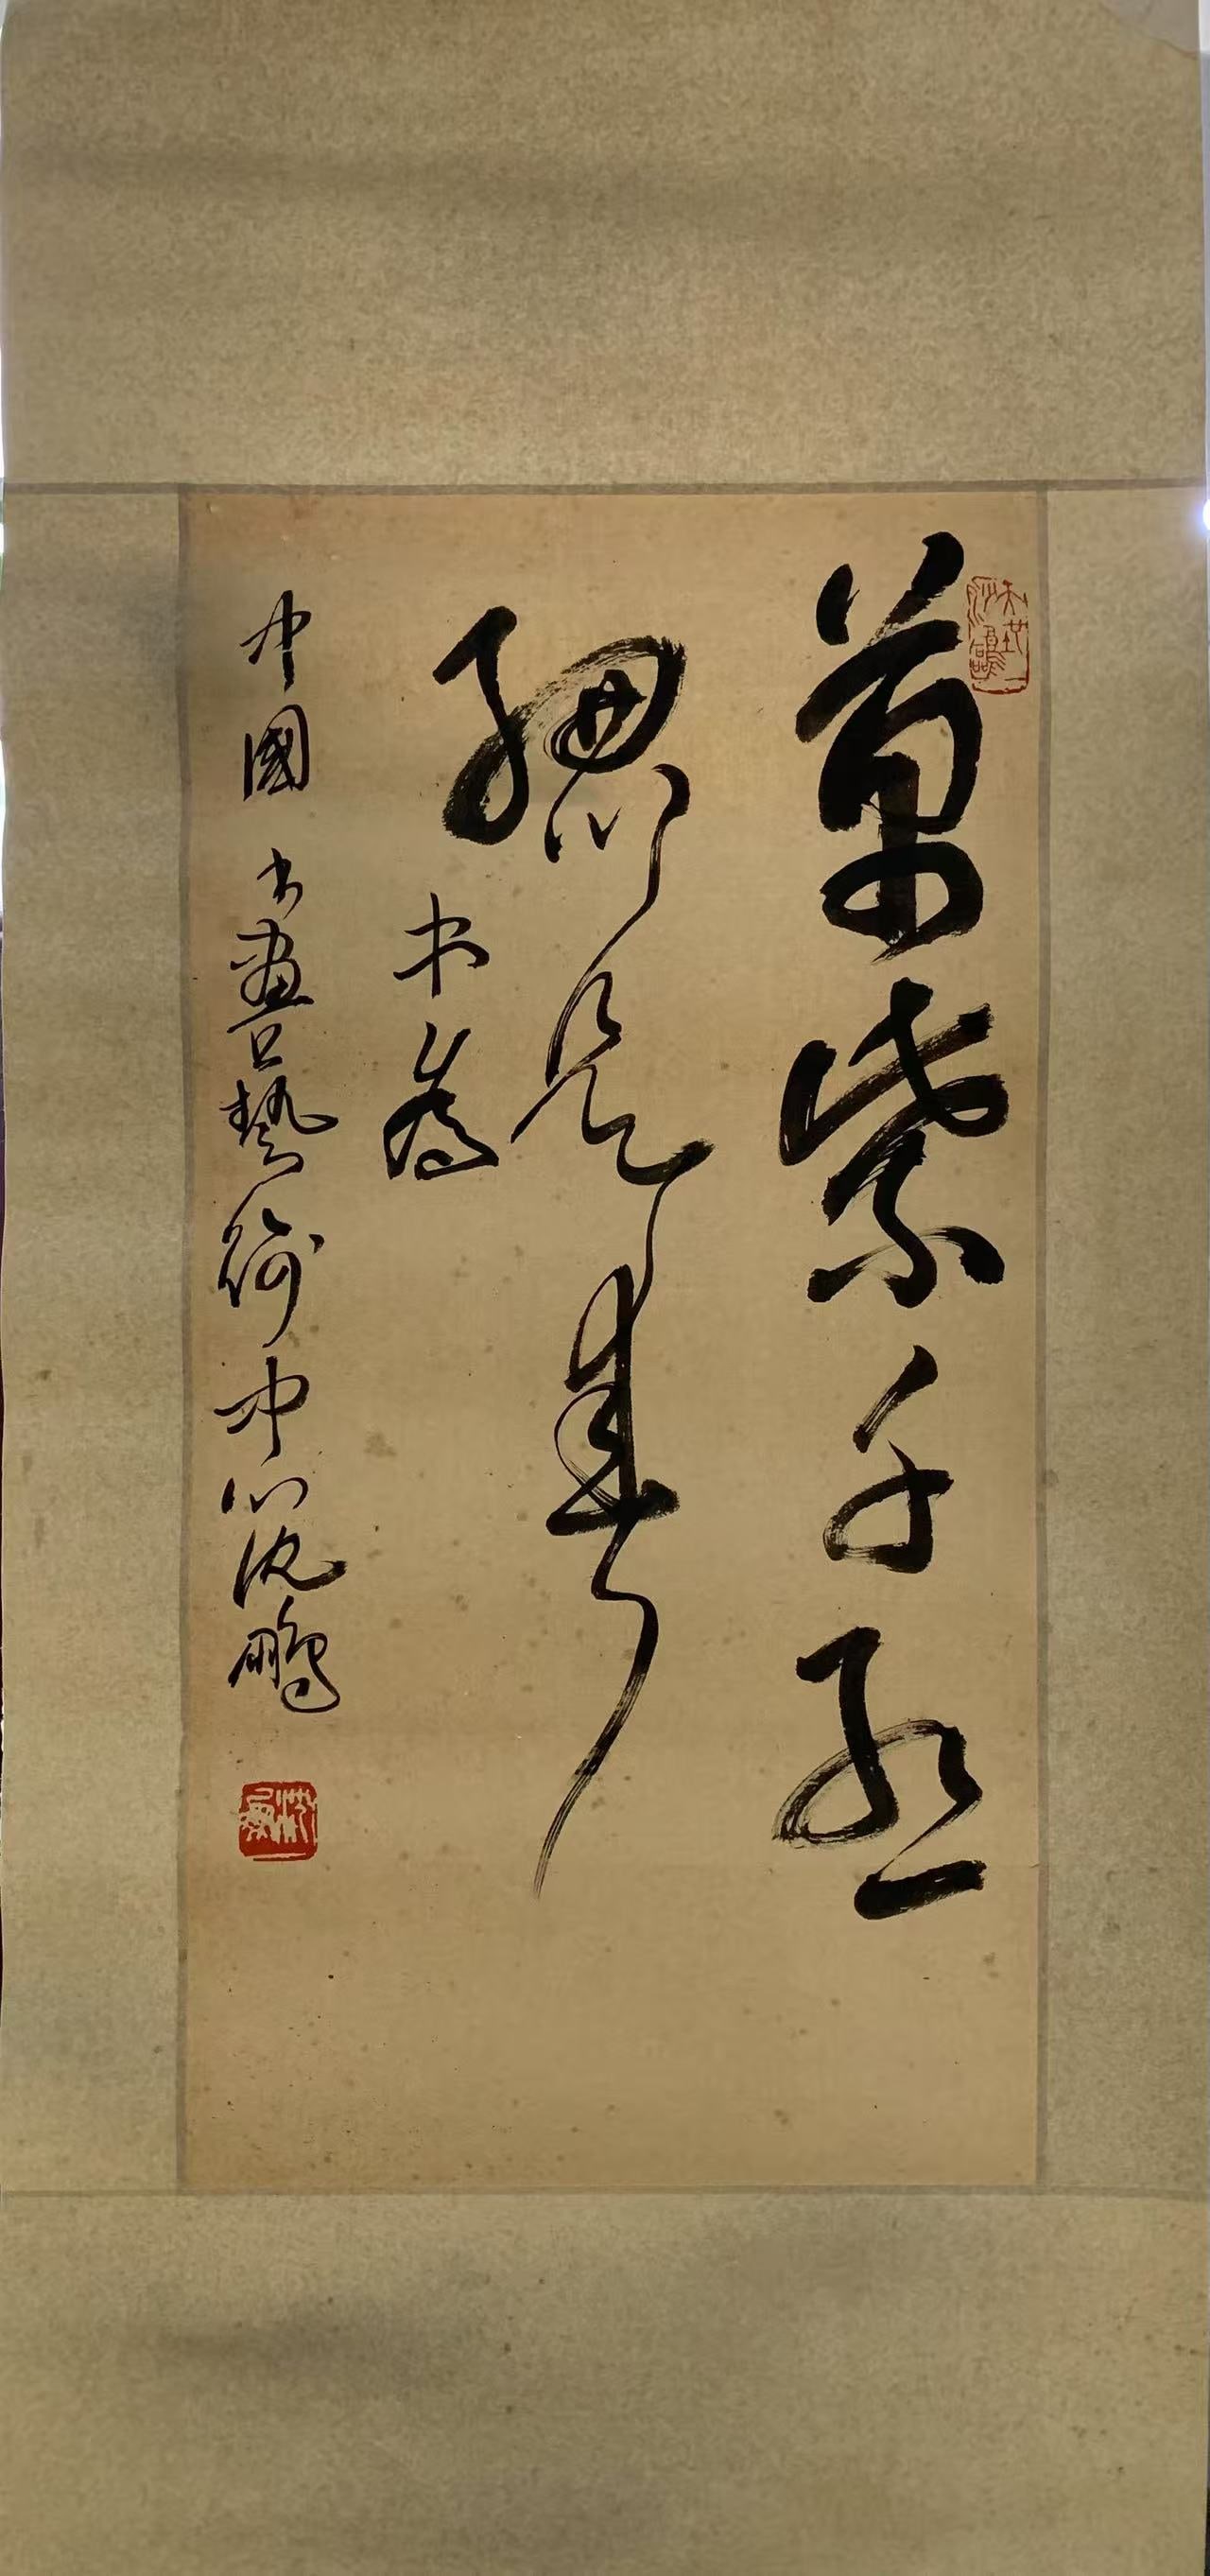 萬紫千紅
總是春
书為
中國书畫藝術中心沈鵬